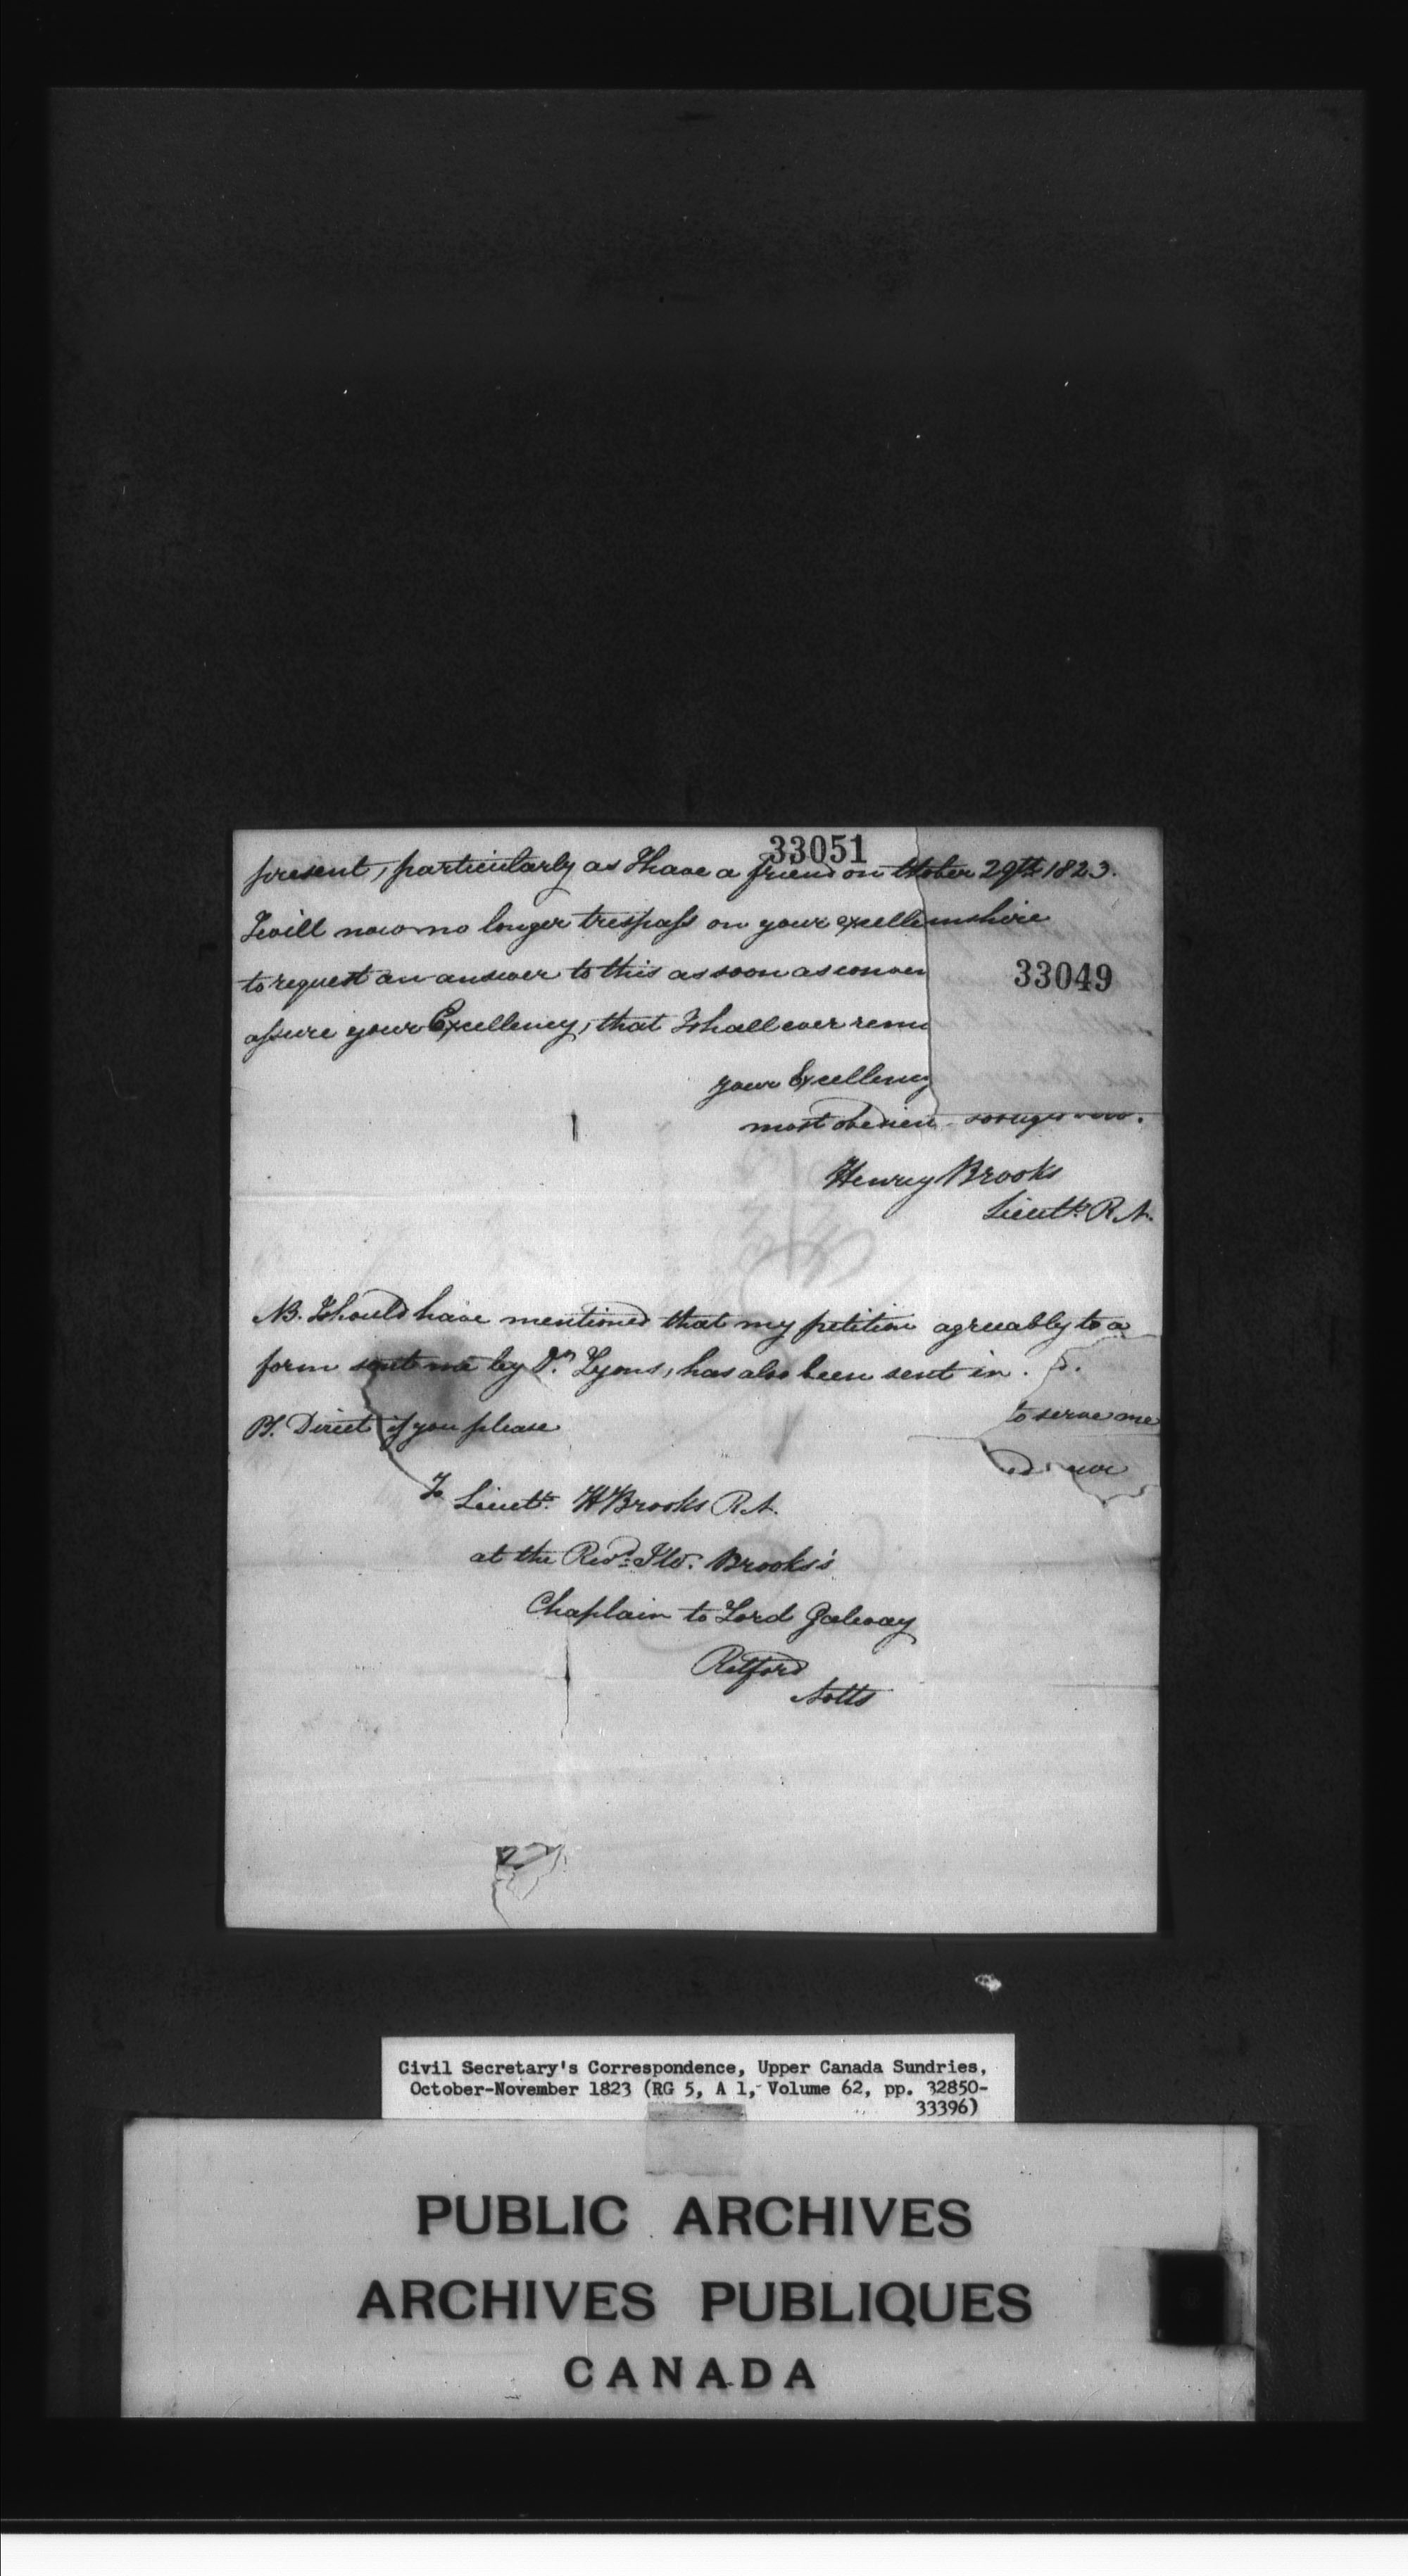 33051
present, particularly as I have a friend on
I will now no longer trespass on your excelle
to request an answer to this as soon as conven
assure your Excellency, that I shall ever rem
your Excellency
most obedien
Henry Brooks
Lieutt. R.N.
tober 29th 1823.
mshire
33049
NB. I should have mentioned that my petition agreeably to a
form sent me by Dr. Lyons, has also been sent in.
PS. Direct if you please
to serve me
To Lieutt. H Brooks R.N.
at the Revd. J W. Brooks's
Chaplain to Lord Galway
Retford
Notts
Civil Secretary's Correspondence, Upper Canada Sundries,
October-November 1823 (RG 5, A 1, Volume 62, pp. 32850-
33396)
PUBLIC ARCHIVES
ARCHIVES PUBLIQUES
CANADA